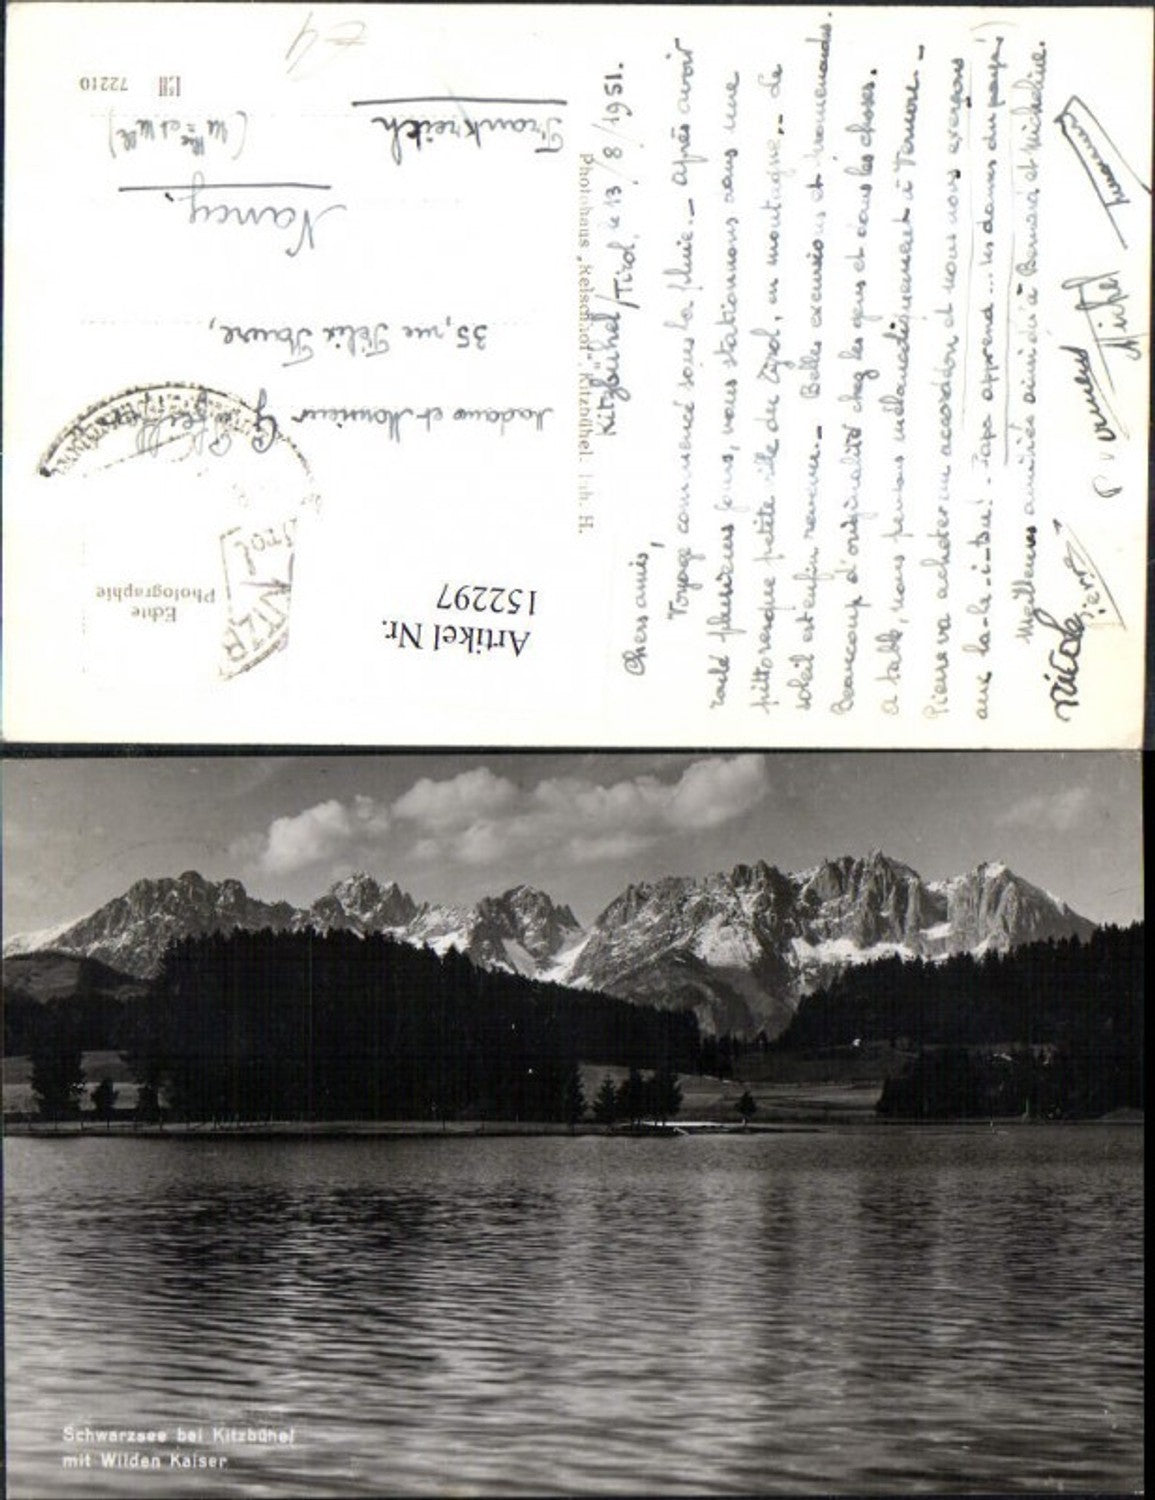 Kitzbühel/Tirol, le 13/8/1951.
Chers amis,
Voyage commencé sous la pluie. – après avoir
roulé plusieurs jours, nous stationnons dans une
pittoresque petite ville du Tyrol, en montagne. – Le
soleil est enfin revenu. – Belles excursions et promenades.
Beaucoup d'originalité chez les gens et dans les choses.
A table, nous pensons mélancoliquement à
Pierre va acheter un accordéon et nous nous exerçons
aux la-la-i-tou! – Papa apprend ... les danses du pays!
Meilleures amitiés ainsi qu'à Bernard et Micheline.
Nicole
Pierre
Michel
Madame et Monsieur
35, rue Félix Faure,
Nancy.
(M.the et Mlle)
Frankreich
Echte
Photographie
Artikel Nr.
152297
Photohaus „Reisch-hof“, Kitzbühel. Inh. H.
72210
Schwarzsee bei Kitzbühel
mit Wilden Kaiser